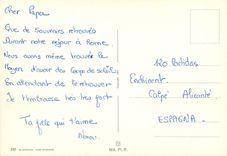 Cher Papa
Que de souvenirs retrouvés
Durant notre séjour à Rome.
Nous avons même trouvé le
Moyen d'avoir des coups de soleil
En attendant de te retrouver
Je t'embrasse très très fort
Ta fille qui t'aime
120 Bolidas
Calpé Alicante
ESPAGNA